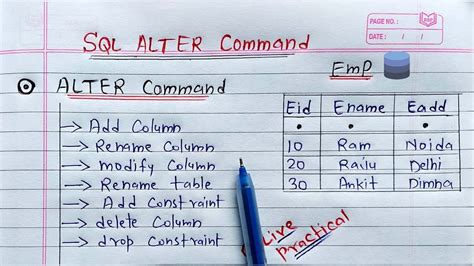 PAGE NO.:
DATE:
SQL ALTER Command
EmP
ALTER Command
Eid Ename Eadd
→ Add Column
→ Rename Column
10 Ram Noida
→ modify Column
20 Raju Delhi
→ Rename table
30 Ankit Dimha
→ Add Constraint
→ delete Column
→ drop Constraint
Live
Practical